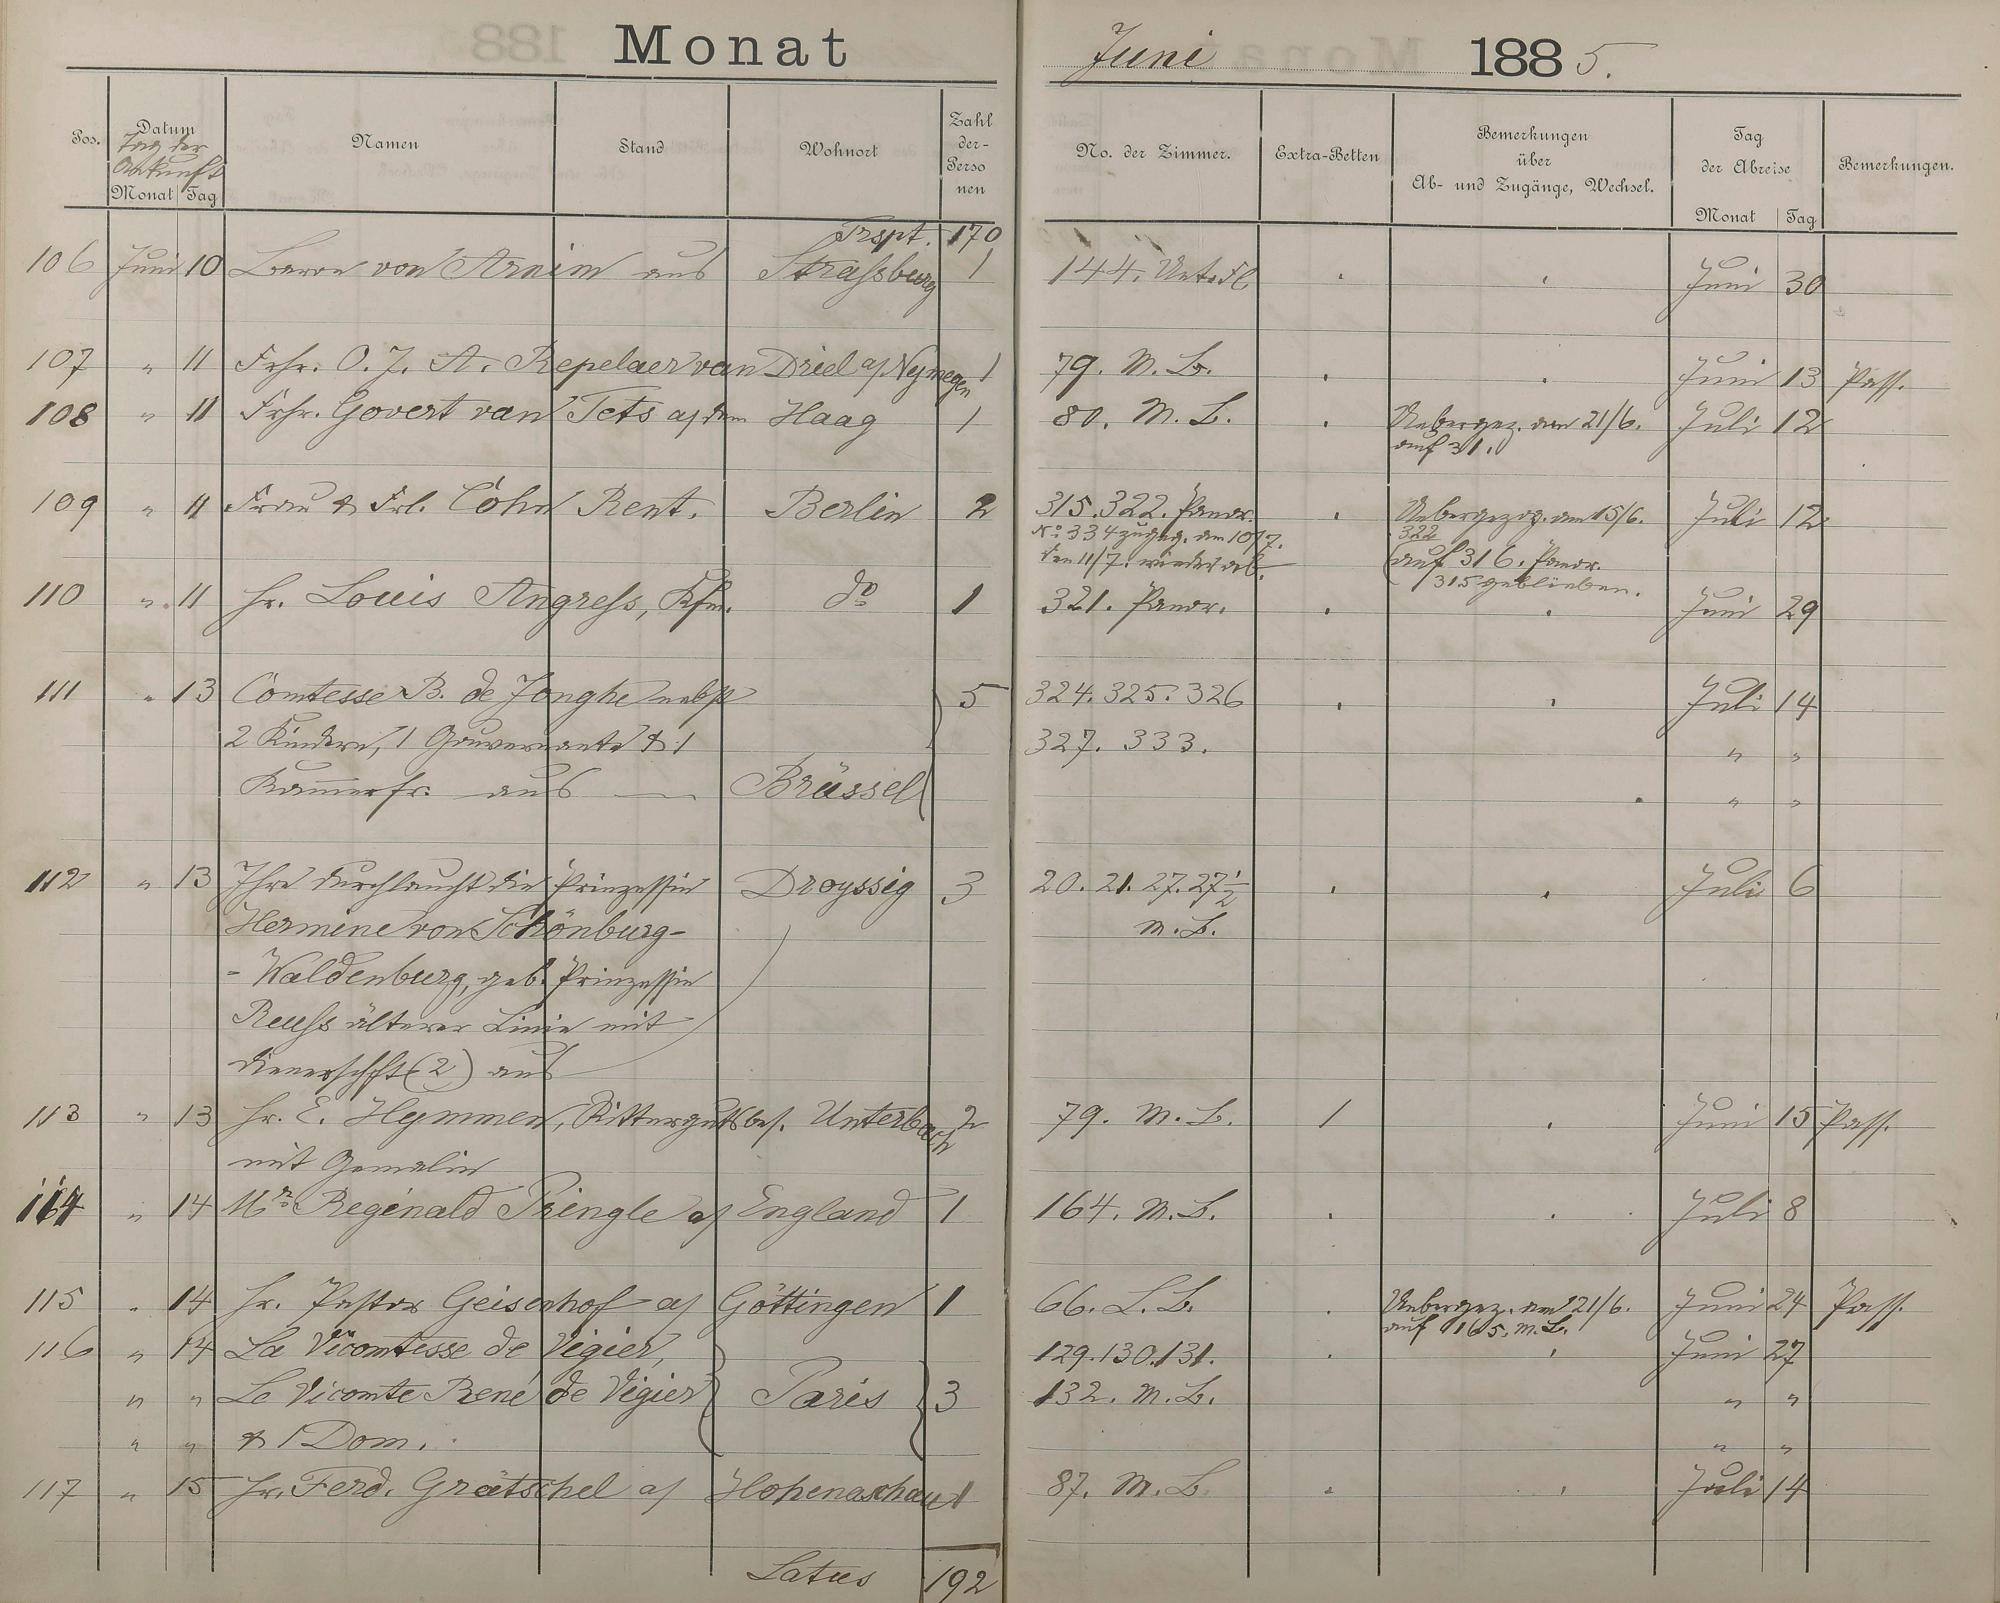 Monat Juni 1885.
Pos. Datum Namen Stand Wohnort Zahl der Personen No. der Zimmer. Extra-Betten Bemerkungen über Ab- und Zugänge, Wechsel. Tag der Abreise Bemerkungen.
Tag der Ankunft
Monat Tag Monat Tag
Trspt. 170
106 Juni 10 Baron von Arnim aus Straßburg 1 144. Unt. Fl. Juni 30
107 " 11 Frhr. O. J. A. Repelaer van Driel a/ Nymegen 1 79. M. B. Juni 13 Pass.
108 " 11 Frhr. Govert van Tets a/ dem Haag 1 80. M. B. Uebergez. am 21/6. Juli 12
auf 31.
109 " 11 Frau & Frl. Cohn Rent. Berlin 2 315. 322. Panor. Uebergezog. am 15/6. Juli 12
No. 334 zugeg. am 10/7. 322
den 11/7. wieder ab. auf 316. Panor.
315 geblieben.
110 " 11 Hr. Louis Angreß, Kfm. do 1 321. Panor. Juni 29
111 " 13 Comtesse B. de Jonghe nebst 5 324. 325. 326 Juli 14
2 Kindern, 1 Gouvernante & 1 327. 333. " "
Kammerfr. aus — Brüssel " "
112 " 13 Ihre Durchlaucht die Prinzessin Droyssig 3 20. 21. 27. 27½ Juli 6
Hermine von Schönburg- M. B.
-Waldenburg, geb. Prinzessin
Reuß älterer Linie mit
Dienerschft (2) aus
113 " 13 Hr. E. Hymmen, Rittergutsbes. Unterbach 2 79. M. B. 1 Juni 15 Pass.
mit Gemalin
114 " 14 Mr. Reginald Pringle a/ England 1 164. M. B. Juli 8
115 " 14 Hr. Pastor Geisenhof a/ Göttingen 1 66. L. B. Uebergez. am 21/6. Juni 24 Pass.
auf 165. M. B.
116 " 14 La Vicomtesse de Vigier, 129. 130. 131. Juni 27
" " Le Vicomte René de Vigier Paris 3 132. M. B. " "
" " & 1 Dom. " "
117 " 15 Hr. Ferd. Grätschel a/ Hohenaschau 1 87. M. B. Juli 14
Latus 192